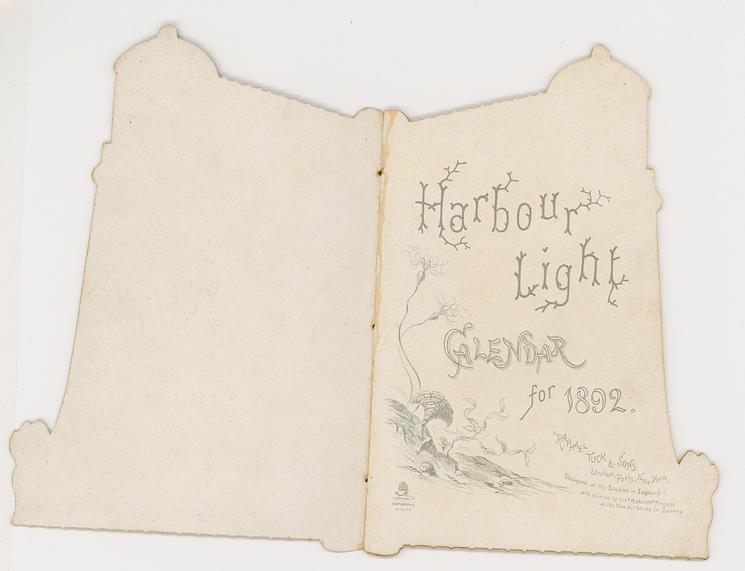 Harbour
Light
CALENDAR
for 1892.
RAPHAEL
TUCK & SONS,
London, Paris, New York.
Designed at the Studios in England
and printed by the "Kaloim" Process
at the Fine Art Works in Saxony